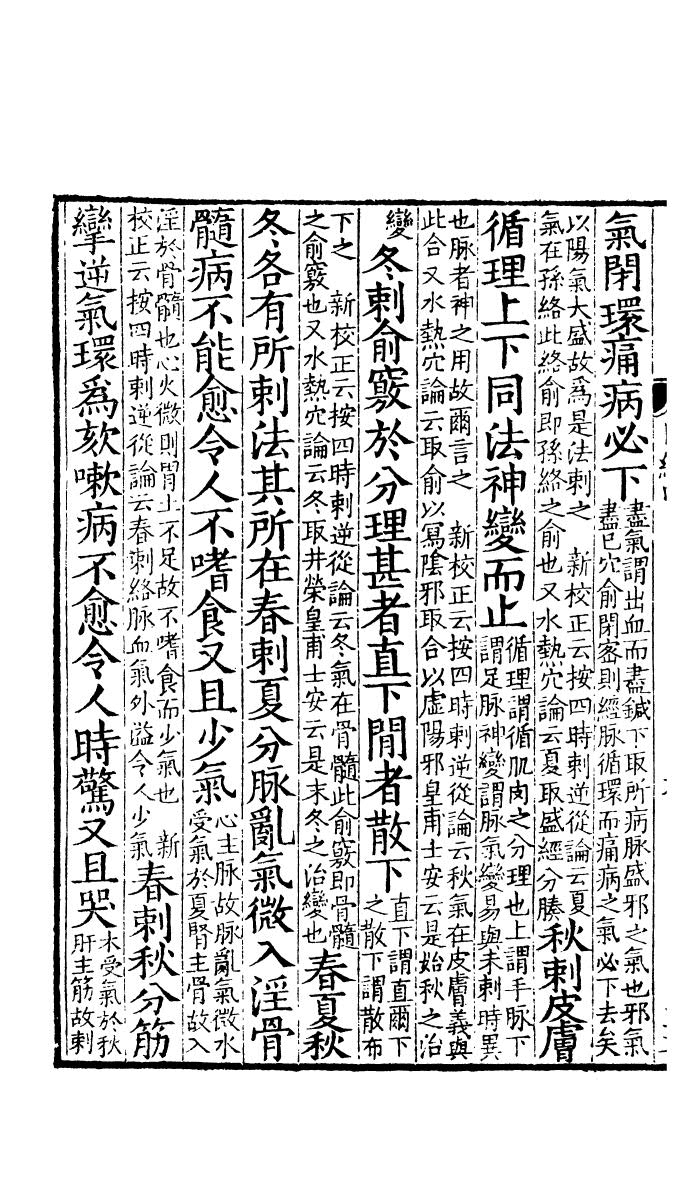 氣閉環痛病必下盡氣謂出血而盡鍼下取所病脉盛邪之氣也邪氣盡已穴俞閉密則經脉循環而痛病之氣必下去矣
以陽氣大盛故爲是法刺之　新校正云按四時刺逆從論云夏氣在孫絡此絡俞即孫絡之俞也又水熱穴論云夏取盛經分腠秋刺皮膚
循理上下同法神變而止循理謂循肌肉之分理也上謂手脉下謂足脉神變謂脉氣變易與未刺時異
也脉者神之用故爾言之　新校正云按四時刺逆從論云秋氣在皮膚義與此合又水熱穴論云取俞以寫陰邪取合以虛陽邪皇甫士安云是始秋之治
變冬刺俞竅於分理甚者直下閒者散下直下謂直爾下之散下謂散布
下之　新校正云按四時刺逆從論云冬氣在骨髓此俞竅即骨髓之俞竅也又水熱穴論云冬取井榮皇甫士安云是末冬之治變也春夏秋
冬各有所刺法其所在春刺夏分脉亂氣微入淫骨
髓病不能愈令人不嗜食又且少氣心主脉故脉亂氣微水受氣於夏腎主骨故入
淫於骨髓也心火微則胃土不足故不嗜食而少氣也　新校正云按四時刺逆從論云春刺絡脉血氣外溢令人少氣春刺秋分筋
攣逆氣環爲欬嗽病不愈令人時驚又且哭木受氣於秋肝主筋故刺